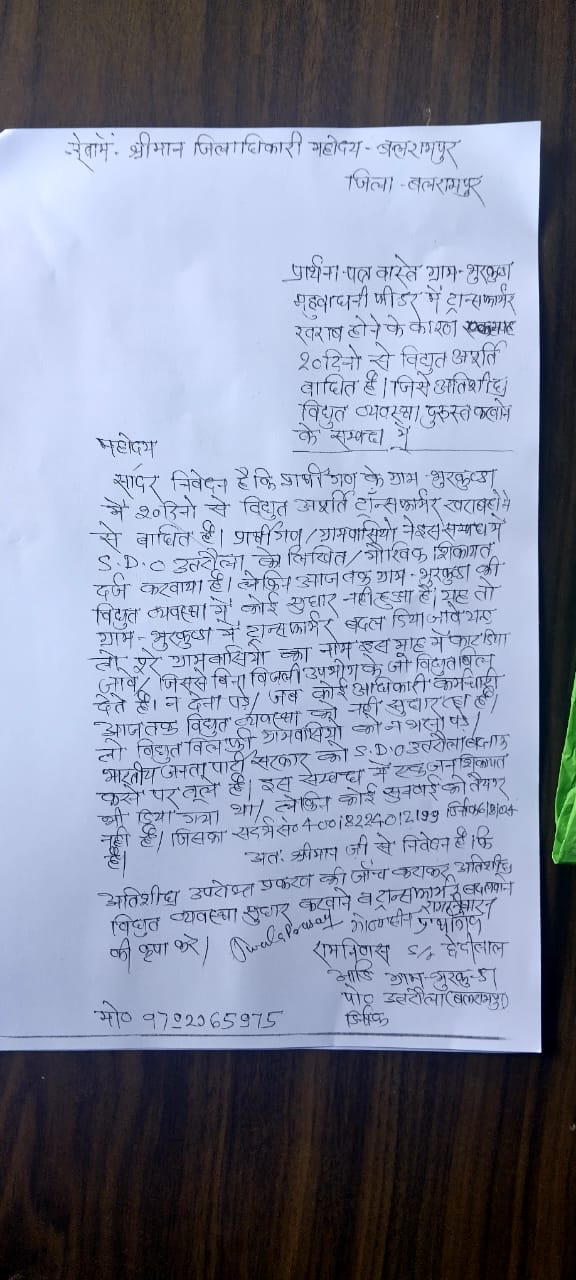 सेवामें- श्रीमान जिलाधिकारी महोदय - बलरामपुर
जिला - बलरामपुर
प्रार्थना-पत्र वास्ते ग्राम-भुरकुण्डा
महुवाधनी फीडर में ट्रान्सफार्मर
खराब होने के कारण
20 दिनो से विद्युत आपूर्ति
बाधित है। जिसे अतिशीघ्र
विद्युत व्यवस्था
के सम्बन्ध में
महोदय
सादर निवेदन है कि प्रार्थी गण के ग्राम-भुरकुण्डा
मे 20 दिनो से विद्युत आपूर्ति ट्रॉन्सफार्मर खराब होने
से बाधित है। प्रार्थीगण / ग्रामवासियो ने इस सम्बन्ध में
S.D.O उतरौला को लिखित / मौखिक शिकायत
दर्ज करवाया है। लेकिन आजतक ग्राम-भुरकुण्डा की
विद्युत व्यवस्था में कोई सुधार नही हुआ है। यह तो
ग्राम-भुरकुण्डा में ट्रान्सफार्मर बदल दिया जावे
तो पूरे ग्रामवासियो का नाम इस माह में काट दिया
जावे। जिससे बिना बिजली उपभोग के जो विद्युत बिल
देते है। न देना पड़े। जब कोई अधिकारी कर्मचारी
आजतक विद्युत व्यवस्था को नही सुधार रहा है।
तो विद्युत बिल की ग्रामवासियो को न भरना पड़े।
भारतीय जनता पार्टी सरकार को S.D.O उतरौला
करने पर तूले है। इस सम्बन्ध में एक जन शिकायत
भी दिया गया था। लेकिन कोई सुनवाई को तैयार
नही है। जिसका सदर्भ सं० 40018224012199 दिनांक
है। अतः श्रीमान जी से निवेदन है। कि
अतिशीघ्र उपरोक्त प्रकरण की जाँच कराकर अतिशीघ्र
विद्युत व्यवस्था सुधार करवाने व ट्रान्सफार्मर बदलवाने
की कृपा करे। प्रार्थीगण
रामनिवास S/o छेदीलाल
आदि ग्राम-भुरकुण्डा
पो० उतरौला (बलरामपुर)
मो० 9792065975 दिनांक